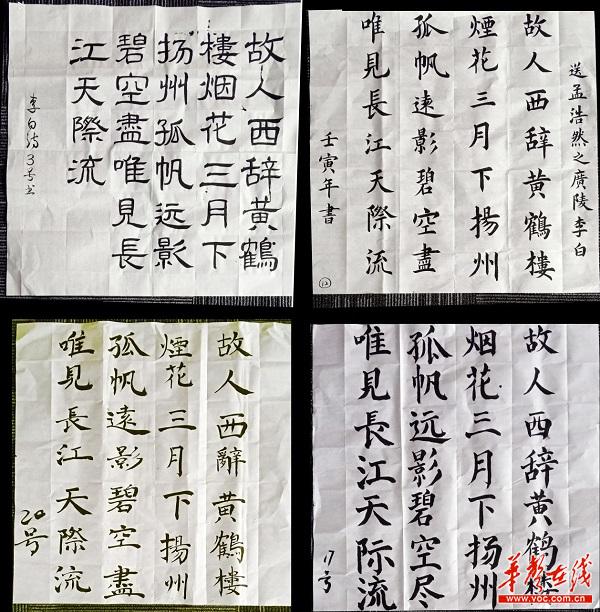 故人西辞黄鶴
樓烟花三月下
扬州孤帆远影
碧空盡唯見長
江天際流
李白诗3号书
送孟浩然之廣陵李白
故人西辞黄鶴樓
煙花三月下揚州
孤帆遠影碧空盡
唯見長江天際流
壬寅年書
12
故人西辭黄鶴樓
煙花三月下揚州
孤帆遠影碧空盡
唯見長江天際流
20号
故人西辞黄鹤楼
烟花三月下扬州
孤帆远影碧空尽
唯見長江天际流
17号
华声在线
www.voc.com.cn